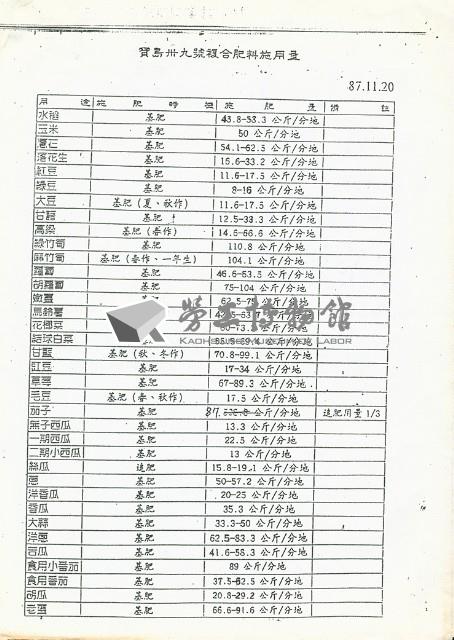 寶島卅九號複合肥料施用量
87.11.20
用 途 施 肥 時 施 肥 量 備 註
水稻 基肥 43.8-58.3 公斤/分地
玉米 基肥 50 公斤/分地
薏仁 基肥 54.1-62.5 公斤/分地
落花生 基肥 15.6-33.2 公斤/分地
紅豆 基肥 11.6-17.5 公斤/分地
綠豆 基肥 8-16 公斤/分地
大豆 基肥(夏、秋作) 11.6-17.5 公斤/分地
甘藷 基肥 12.5-33.3 公斤/分地
高粱 基肥(春作) 14.6-66.6 公斤/分地
綠竹筍 基肥 110.8 公斤/分地
麻竹筍 基肥(春作、一年生) 104.1 公斤/分地
蘿蔔 基肥 46.6-53.5 公斤/分地
胡蘿蔔 基肥 75-104 公斤/分地
嫩薑 基肥 62.5-75 公斤/分地
馬鈴薯 基肥 公斤/分地
花椰菜 基肥 公斤/分地
結球白菜 基肥 公斤/分地
勞工博物館
KAOHSIUNG MUSEUM OF LABOR
甘藍 基肥(秋、冬作) 70.8-99.1 公斤/分地
豇豆 基肥 17-34 公斤/分地
草莓 基肥 67-89.3 公斤/分地
毛豆 基肥(春、秋作) 17.5 公斤/分地
茄子 基肥 87. 公斤/分地 追肥用量 1/3
無子西瓜 基肥 13.3 公斤/分地
一期西瓜 基肥 22.5 公斤/分地
二期小西瓜 基肥 13 公斤/分地
絲瓜 追肥 15.8-19.1 公斤/分地
蔥 基肥 50-57.2 公斤/分地
洋香瓜 基肥 20-25 公斤/分地
香瓜 基肥 35.3 公斤/分地
大蒜 基肥 33.3-50 公斤/分地
洋蔥 基肥 62.5-83.3 公斤/分地
苦瓜 基肥 41.6-58.3 公斤/分地
食用小番茄 基肥 89 公斤/分地
食用番茄 基肥 37.5-62.5 公斤/分地
胡瓜 基肥 20.8-29.2 公斤/分地
老薑 基肥 66.6-91.6 公斤/分地